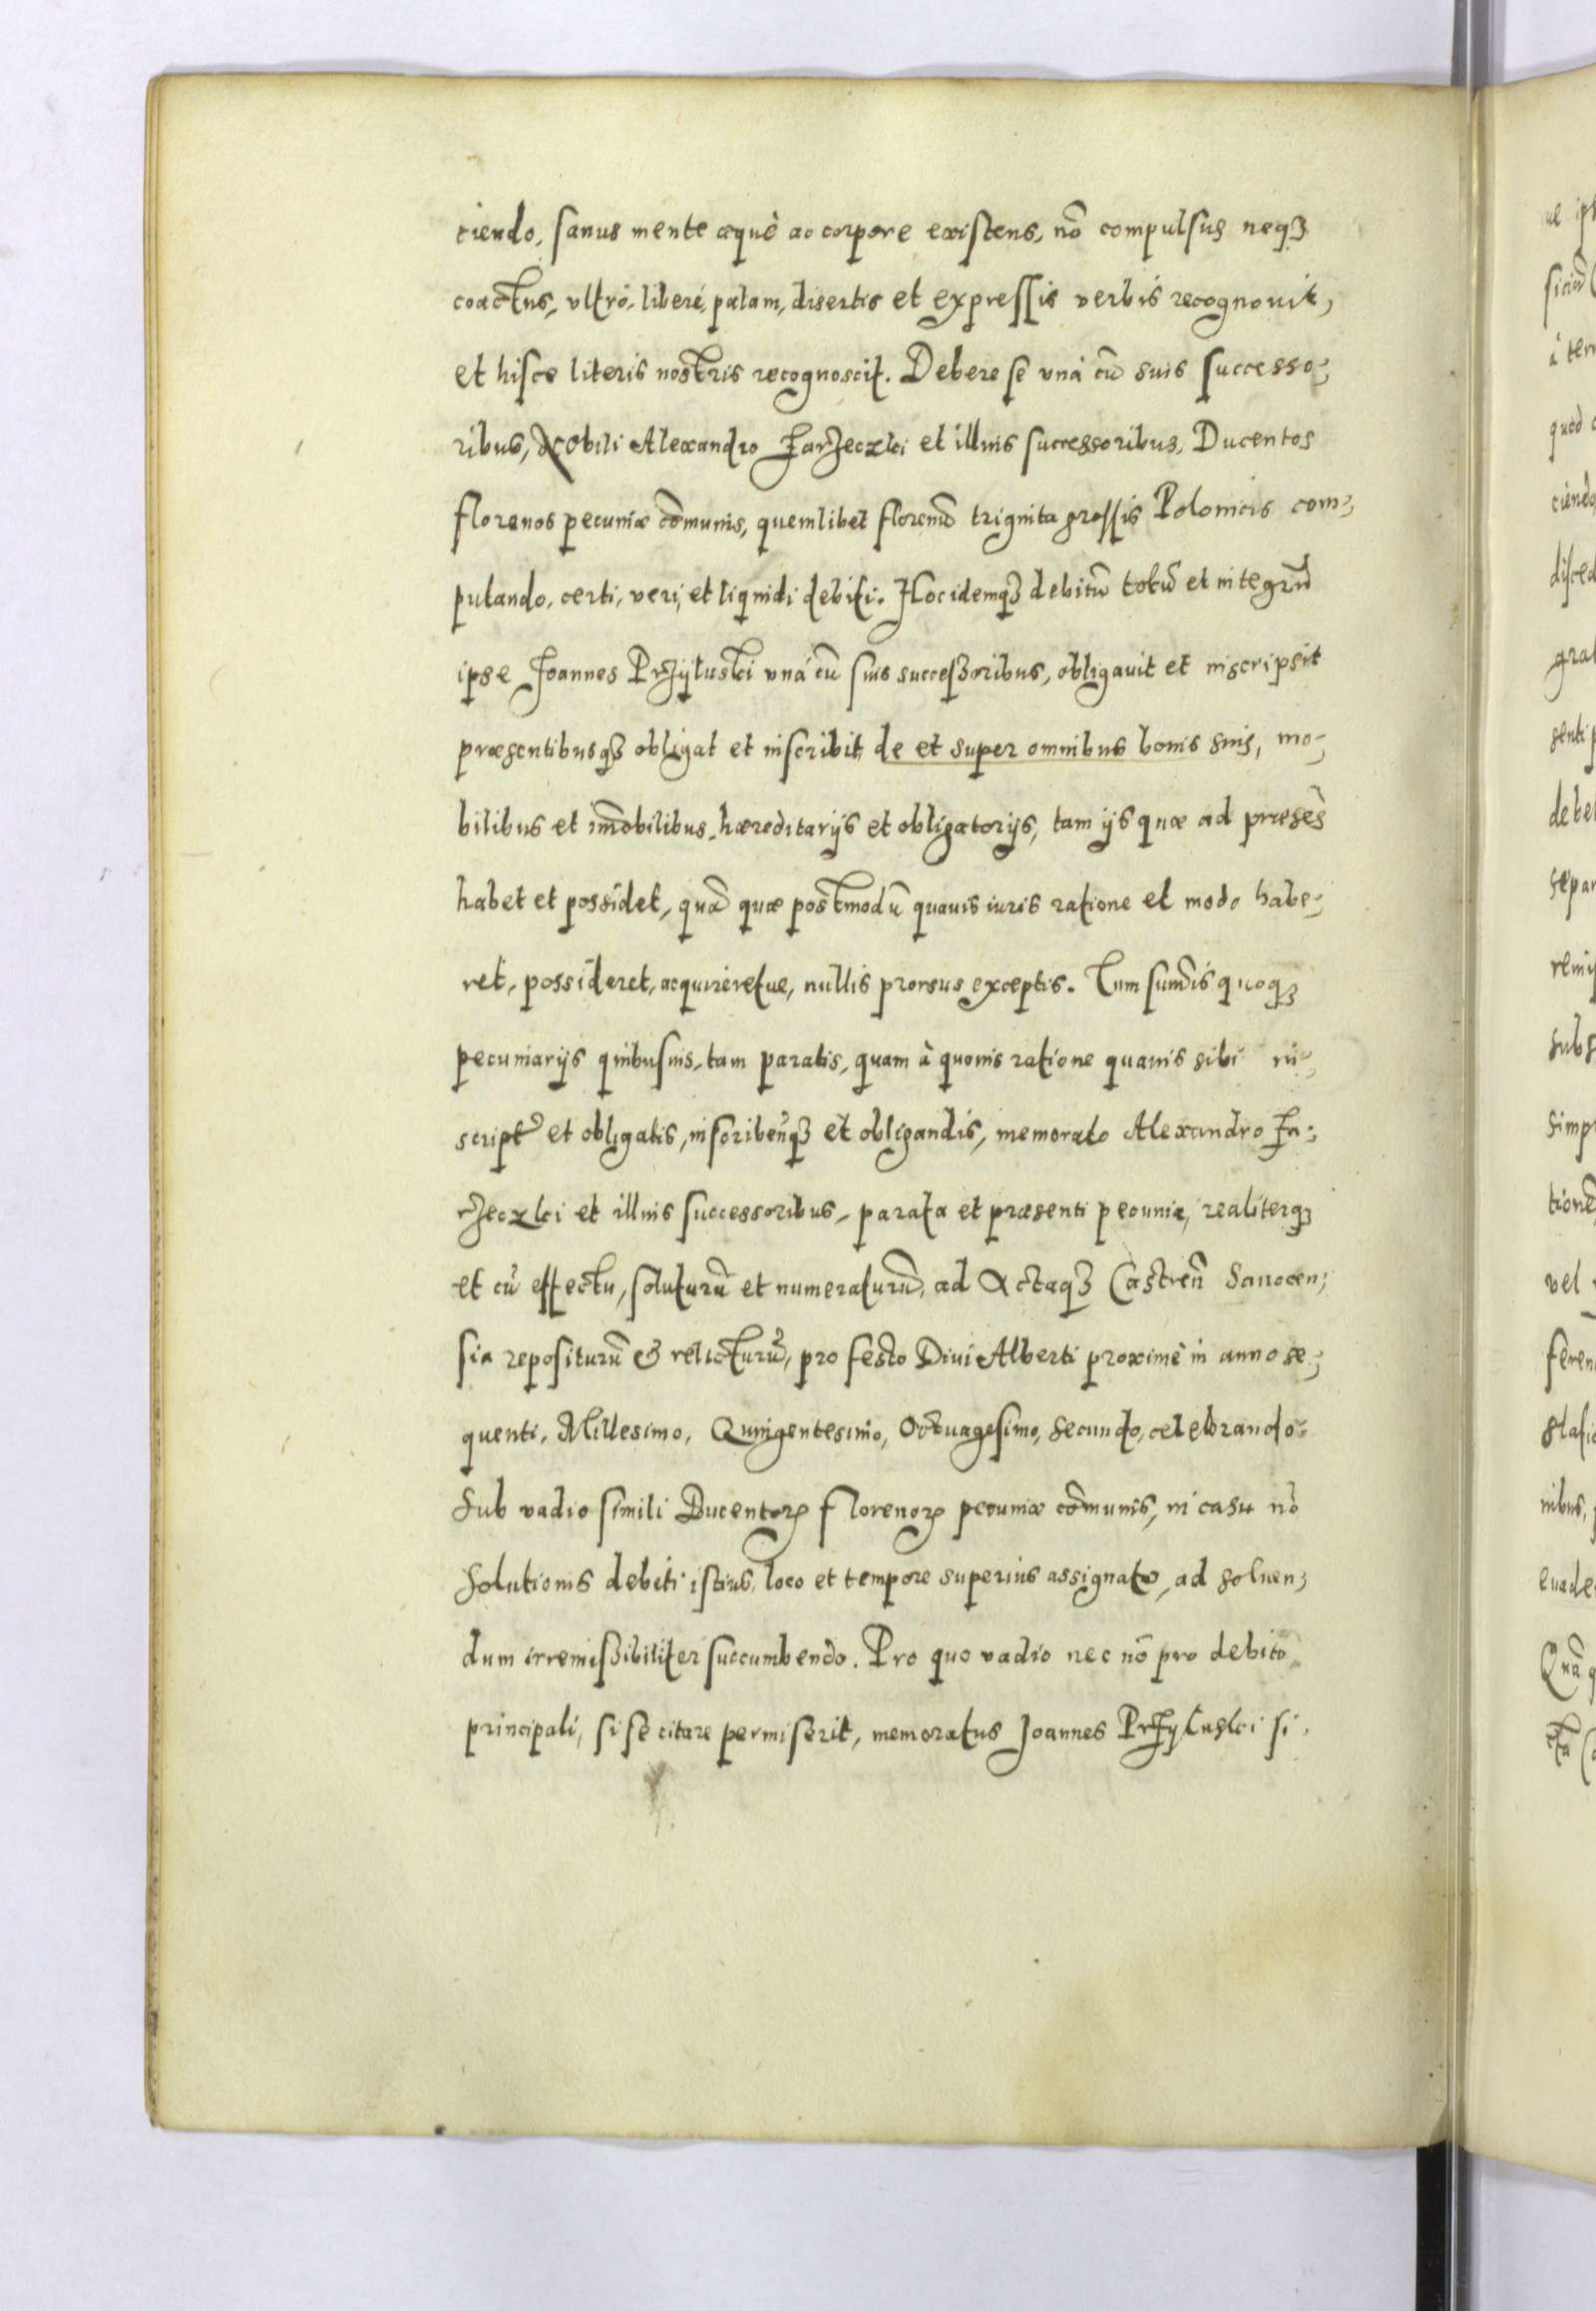 ciendo, sanus mente æquè ac corpore existens, nō compulsus neqꝫ
coactus, vltrò, liberè, palam, disertis et expressis verbis recognouit,
et hisce literis nostris recognoscit. Debere se vnà cū suis successo-
ribus, Nobili Alexandro Jarzeczki et illius successoribus, Ducentos
florenos pecuniæ cōmunis, quemlibet florenū triginta grossis Polonicis com-
putando, certi, veri, et liquidi debiti. Hoc idemqꝫ debitū totū et integrū
ipse Joannes Przyluski vnà cū suis successoribus, obligauit et inscripsit
præsentibusqꝫ obligat et inscribit, de et super omnibus bonis suis, mo-
bilibus et im̄obilibus, hæreditarijs et obligatorijs, tam ijs quæ ad præsēs
habet et possidet, quā quæ postmodū quauis iuris ratione et modo habe-
ret, possideret, acquireretue, nullis prorsus exceptis. Tum sum̄is quoqꝫ
pecuniarijs quibusuis, tam paratis, quam à quouis ratione quauis sibi in-
script' et obligatis, inscribēn̄qꝫ et obligandis, memorato Alexandro Ja-
rzeczki et illius successoribus, parata et præsenti pecunia, realiterqꝫ
et cū effectu, soluturū et numeraturū, ad Actaqꝫ Castren̄ Sanocen-
sia repositurū & relicturū, pro festo Diui Alberti proximè in anno se-
quenti, Millesimo, Quingentesimo, Octuagesimo, secundo, celebrando.
Sub vadio simili Ducentorꝝ florenorꝝ pecuniæ cōmunis, in casu nō
solutionis debiti istius, loco et tempore superius assignato, ad soluen-
dum irremissibiliter succumbendo. Pro quo vadio nec nō pro debito
principali, si se citare permiserit, memoratus Joannes Przyluski si-